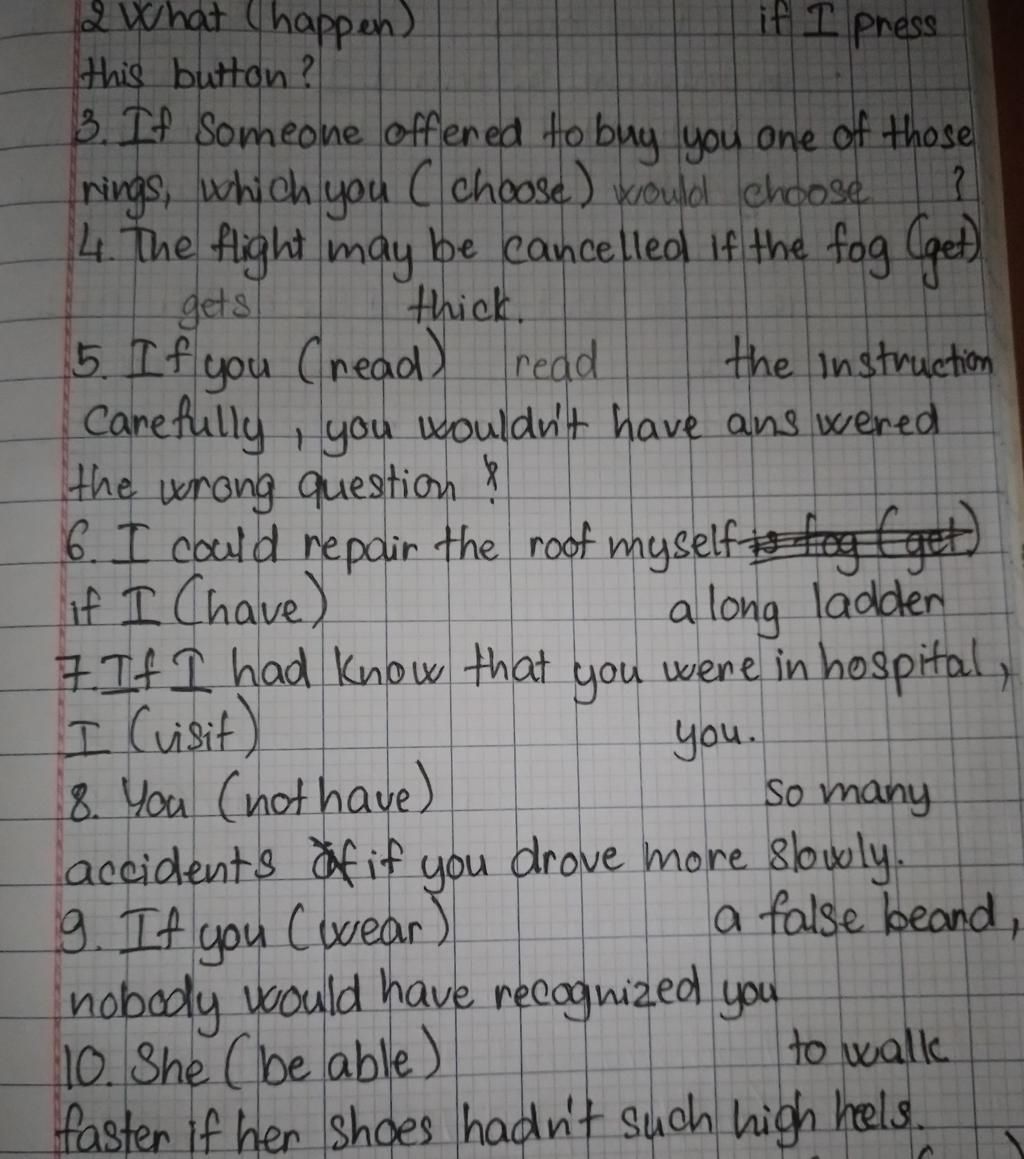 2 What (happen) if I press
this button?
3. If Someone offered to buy you one of those
rings, which you (choose) would choose ?
4. The flight may be cancelled if the fog (get)
gets thick.
5. If you (read) read the instruction
Carefully, you wouldn't have answered
the wrong question
6. I could repair the roof myself is fog (get)
if I (have) a long ladder
7. If I had know that you were in hospital,
I (visit) you.
8. You (not have) so many
accidents if you drove more slowly.
9. If you (wear) a false beard,
nobody would have recognized you
10. She (be able) to walk
faster if her shoes hadn't such high heels.